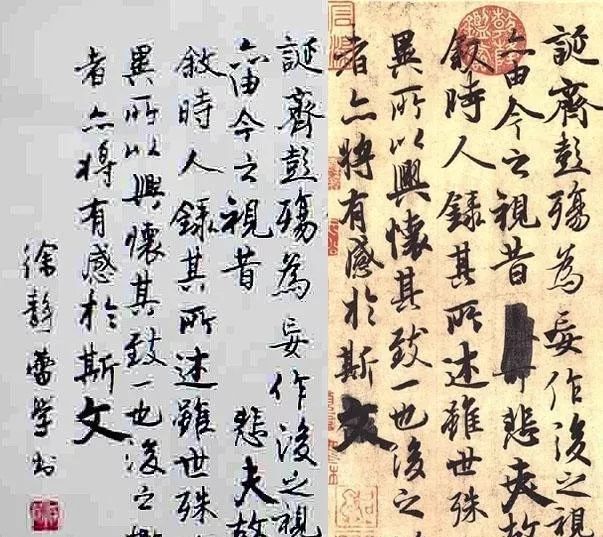 誕齊彭殤為妄作後之視
亦由今之視昔 悲夫故
敘時人錄其所述雖世殊
異所以興懷其致一也後之
者亦將有感於斯文
徐靜蕾學書
誕齊彭殤為妄作後之視
亦由今之視昔 悲夫故
敘時人錄其所述雖世殊
異所以興懷其致一也後之
者亦將有感於斯文